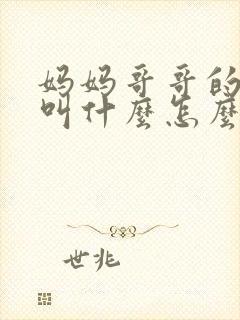 妈妈哥哥的
叫什麼怎麼
世兆